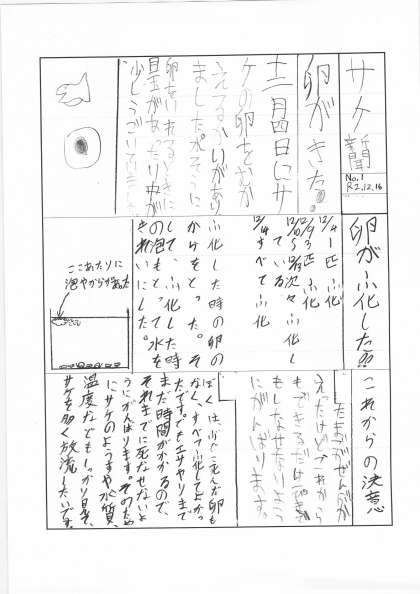 サケ新聞
No.1
R2.12.16
卵がきた!!
十二月四日にサ
ケの卵をむか
えるかいがあり
ました。水そうに
卵をいれるときに
目玉があったり虫が
少しうごいてました
卵がふ化した!!
12/4 1匹ふ化
12/9 3匹ふ化
12/10〜12/13次々ふ化し
ている
12/14すべてふ化
ふ化した時の卵の
からをとった。そ
して、ふ化した時
の泡もとって水を
きれいにした。
ここあたりに
泡やからがあった
これからの決意
したまごがぜんぶか
えったけどこれから
もできるだけ
もしなせないよう
にがんばります。
ぼくは、ふ化こんだ卵も
なく、すべてふ化してよかっ
たです。でもエサやりまで
まだ時間がかかるので、
それまでに死なせないよ
うにがんばります。そのため
にサケのようすや水質、
温度などもしっかり見て、
サケを多く放流したいです。